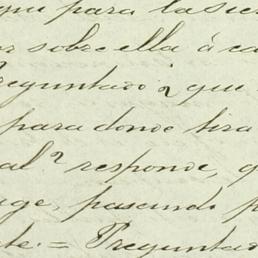 que para la
sobre ella á ca
reguntado que
para donde tira
al? responde,
pasando
te. = Pregunta